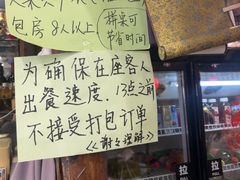 包房8人以上
拼桌可
节省时间
为确保在座客人
出餐速度，13点之前
不接受打包订单
《谢谢理解》
拉
拉